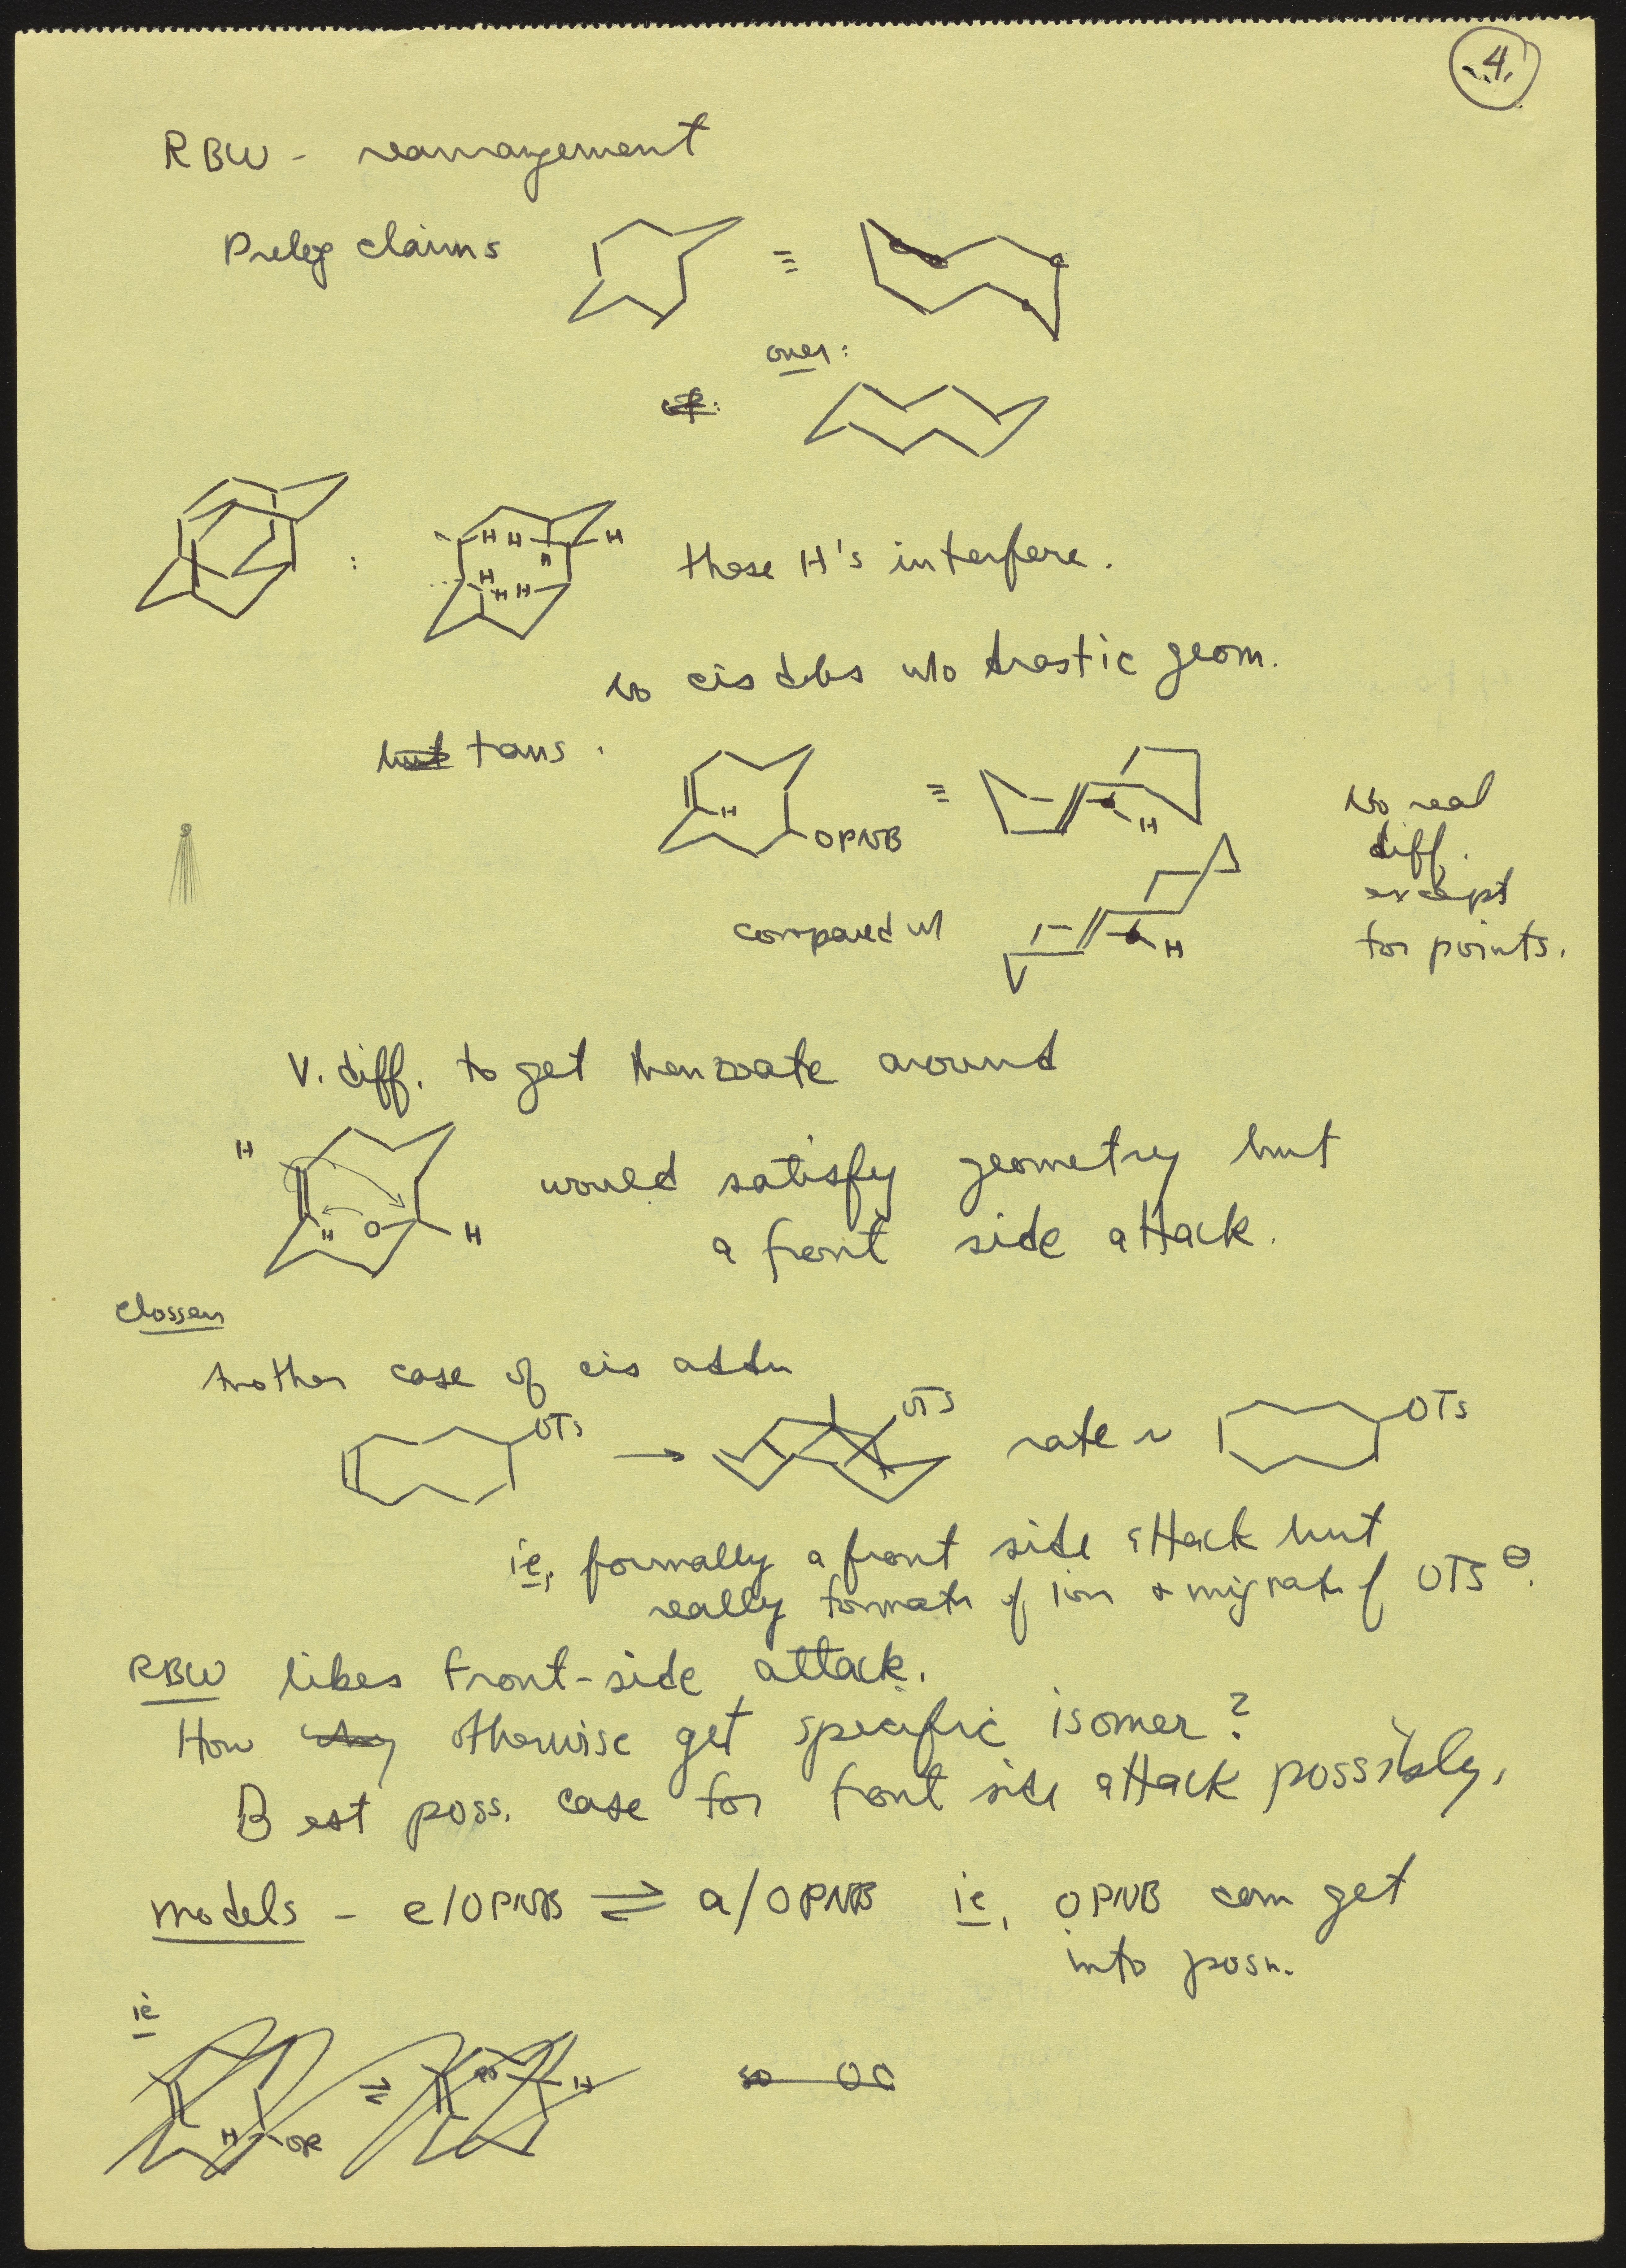 4.
RBW - rearrangement
Prelog claims ≡
over:
these H's interfere.
H H H
H
H
H H
no cis dbs w/o drastic geom.
but trans.
H
OPNB ≡
H
No real
diff.
except
for points.
compared w/
H
V. diff. to get benzoate around
H
H O H
would satisfy geometry but
a front side attack.
Closson
Another case of cis addn
OTs → OTs rate ~ OTs
ie, formally a front side attack but
really formatn of ion & migratn of OTs⊖.
RBW likes front-side attack.
How otherwise get specific isomer?
Best poss. case for front side attack possibly.
models - e/OPNB ⇌ a/OPNB ie, OPNB can get
into posn.
ie
H OR ⇌ H
so